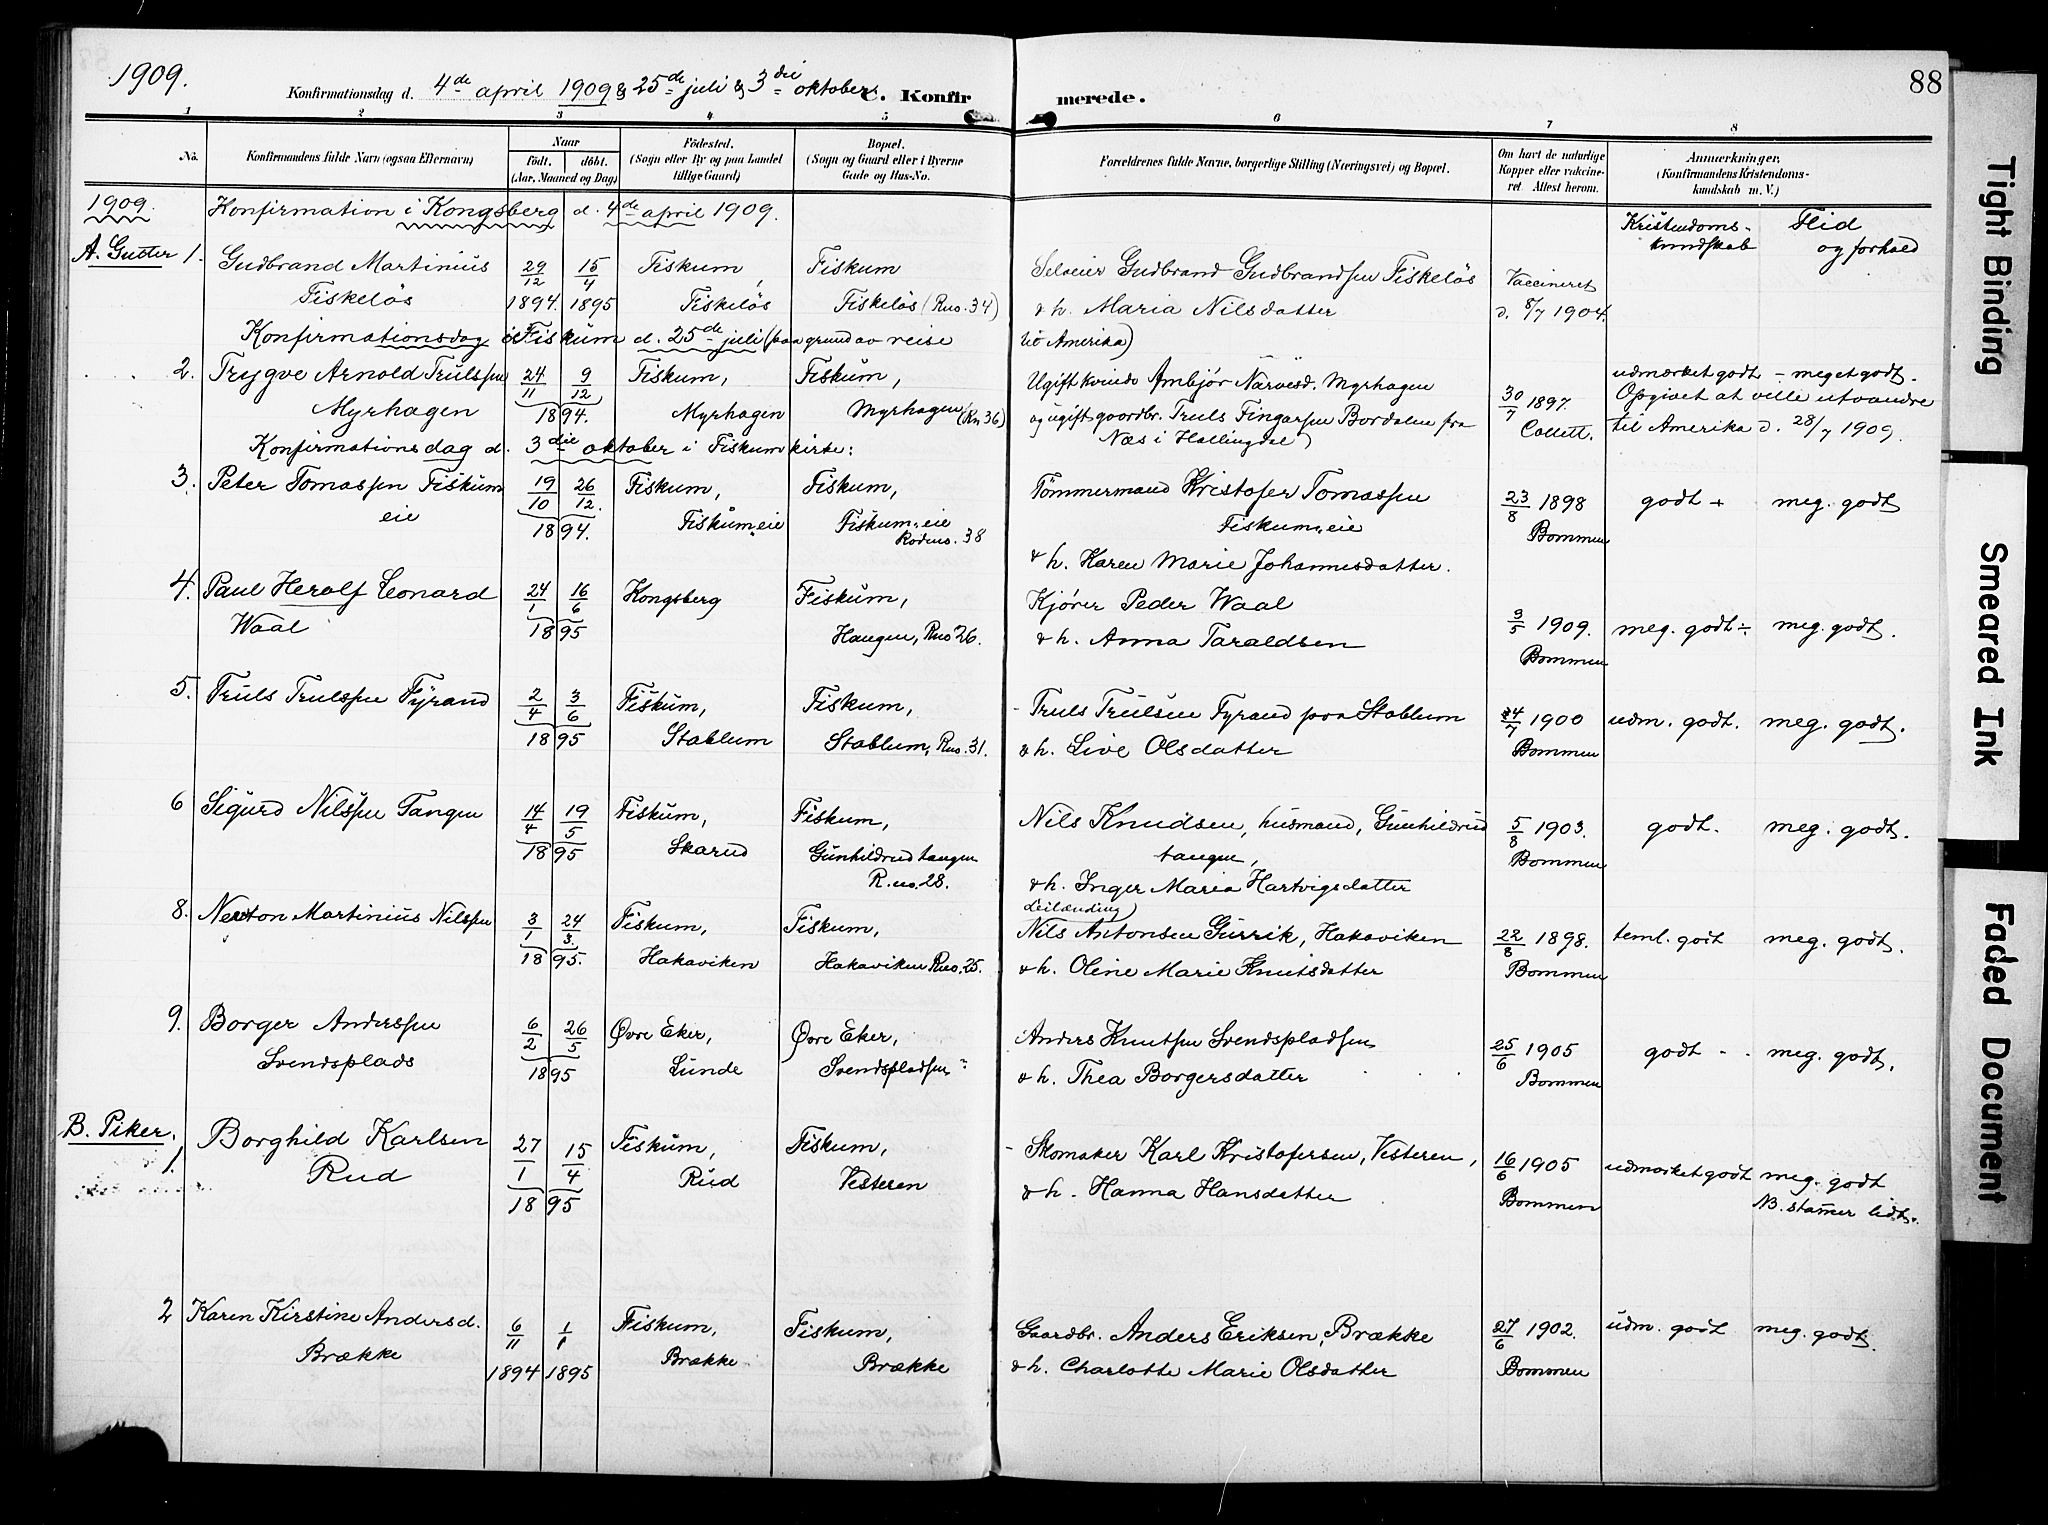 1909.
Konfirmationsdag d. 4de april 1909 & 25de juli & 3die oktober
C. Konfirmerede.
88
1 2 3 4 5 6 7 8
No.
Konfirmandens fulde Navn (ogsaa Efternavn)
Naar
födt. döbt.
(Aar, Maaned og Dag)
Födested.
(Sogn eller By og paa Landet
tillige Gaard)
Bopæl.
(Sogn og Gaard eller i Byerne
Gade og Hus-No.
Forældrenes fulde Navne, borgerlige Stilling (Næringsvei) og Bopæl.
Om havt de naturlige
Kopper eller vakcine-
ret. Attest herom.
Anmærkninger,
(Konfirmandens Kristendoms-
kundskab m. V.)
1909. Konfirmation i Kongsberg d. 4de april 1909.
Kristendoms-
kundskab
Flid
og forhold
A. Gutter 1. Gudbrand Martinius 29/12 15/4 Fiskum, Fiskum Selveier Gudbrand Gudbrandsen Fiskelös Vaccineret
Fiskelös 1894. 1895 Fiskelös Fiskelös (Rno. 34) & h. Maria Nilsdatter d. 8/7 1904.
Konfirmationsdag i Fiskum d. 25de juli (paa grund av reise til Amerika)
2. Trygve Arnold Trulssen 24/11 9/12 Fiskum, Fiskum, Ugift kvinde Ambjör Narvesd. Myrhagen 30/7 1897. udmærket godt - meget godt.
Myrhagen 1894. Myrhagen Myrhagen (Rn. 36) og ugift gaardbr. Truls Fingarsen Bordalen fra Collett. Opgivet at ville utvandre
Næs i Hallingdal) til Amerika d. 28/7 1909.
Konfirmationsdag d. 3die oktober i Fiskum kirke:
3. Peter Tomassen Fiskum 19/10 26/12. Fiskum, Fiskum, Tömmermand Kristofer Tomassen 23/8 1898 godt + meg. godt
eie 1894. Fiskum-eie Fiskum-eie Fiskum-eie Bommen
Rodeno. 38
& h. Karen Marie Johannesdatter.
4. Paul Herolf Leonard 24/1 16/6 Kongsberg Fiskum, Kjører Peder Waal 3/5 1909. meg. godt ÷ meg. godt.
Waal 1895 Haugen, Rno 26. & h. Anna Taraldsen Bommen
5. Truls Trulssen Fyrand 2/4 3/6 Fiskum, Fiskum, - Truls Trulsen Fyrand paa Stablum 24/7 1900 udm. godt. meg. godt.
1895 Stablum Stablum, Rno. 31. & h. Live Olsdatter Bommen
6 Sigurd Nilssen Tangen 14/4 19/5 Fiskum, Fiskum, Nils Knudsen, husmand, Gunhildrud 5/8 1903. godt. meg. godt.
1895 Skarud Gunhildrud tangen tangen, Bommen
R. no. 28. & h. Inger Maria Hartvigsdatter
Leilænding
8. Newton Martinius Nilssen 3/1 24/3. Fiskum, Fiskum, Nils Antonsen Gurrik, Hakaviken 22/8 1898. teml. godt meg. godt.
1895. Hakaviken Hakaviken Rno. 25. & h. Oline Marie Knutsdatter Bommen
9. Borger Anderssen 6/2 26/5 Øvre Eker, Øvre Eker, Anders Knutsen Svendspladsen 25/6 1905 godt - meg. godt.
Svendsplads 1895 Lunde Svendspladsen & h. Thea Borgersdatter Bommen
B. Piker.
1. Borghild Karlsen 27/1 15/4 Fiskum, Fiskum, - Skomaker Karl Kristofersen, Vesteren, 16/6 1905 udmærket godt meg. godt
Rud 1895 Rud Vesteren & h. Hanna Hansdatter Bommen NB. stammer lidt.
2 Karen Kirstine Andersd. 6/11 1/1 Fiskum, Fiskum, Gaardbr. Anders Eriksen, Brække 27/6 1902. udm. godt meg. godt.
Brække 1894 1895 Brække Brække & h. Charlotte Marie Olsdatter Bommen
Tight Binding
Smeared Ink
Faded Document